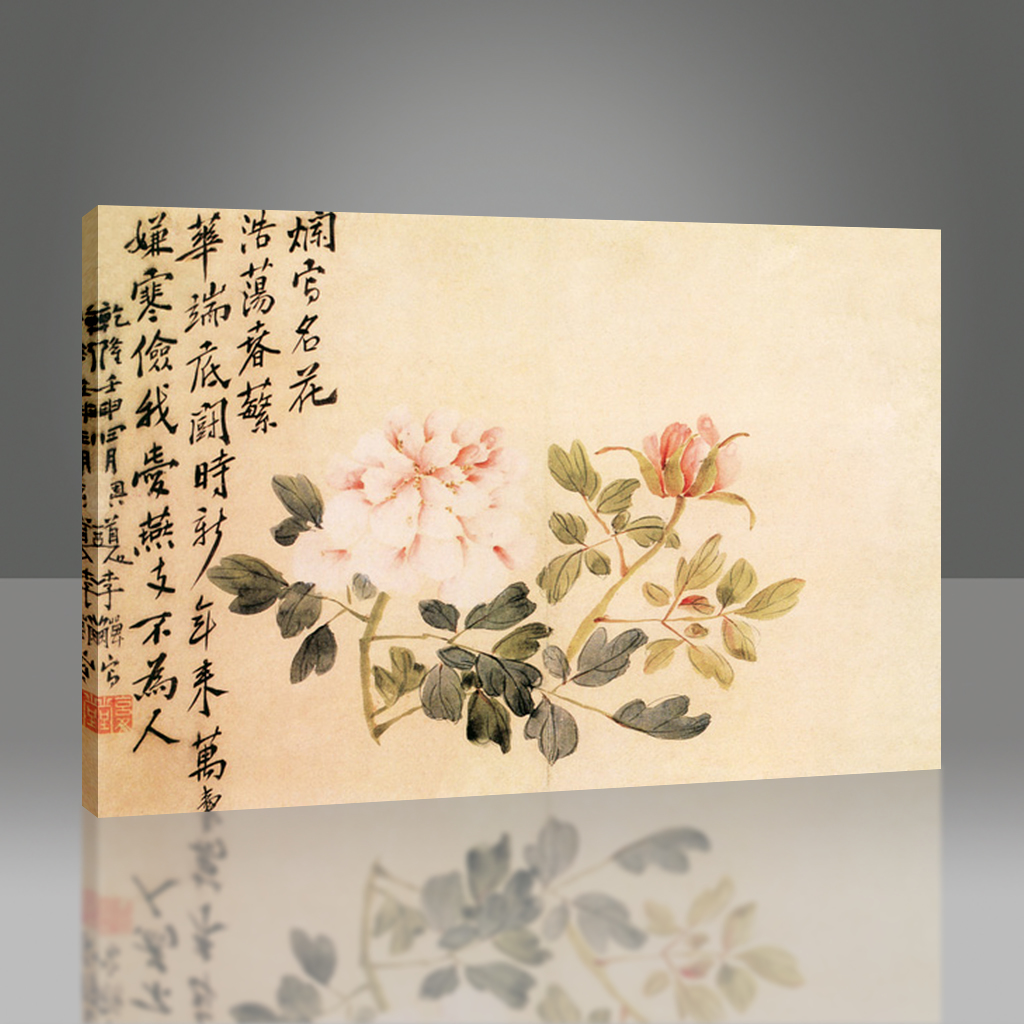 爛寫名花
浩蕩春繁
華端底鬪時新年来萬事
嫌寒儉我愛燕支不為人
乾隆壬申三月道人李鱓寫